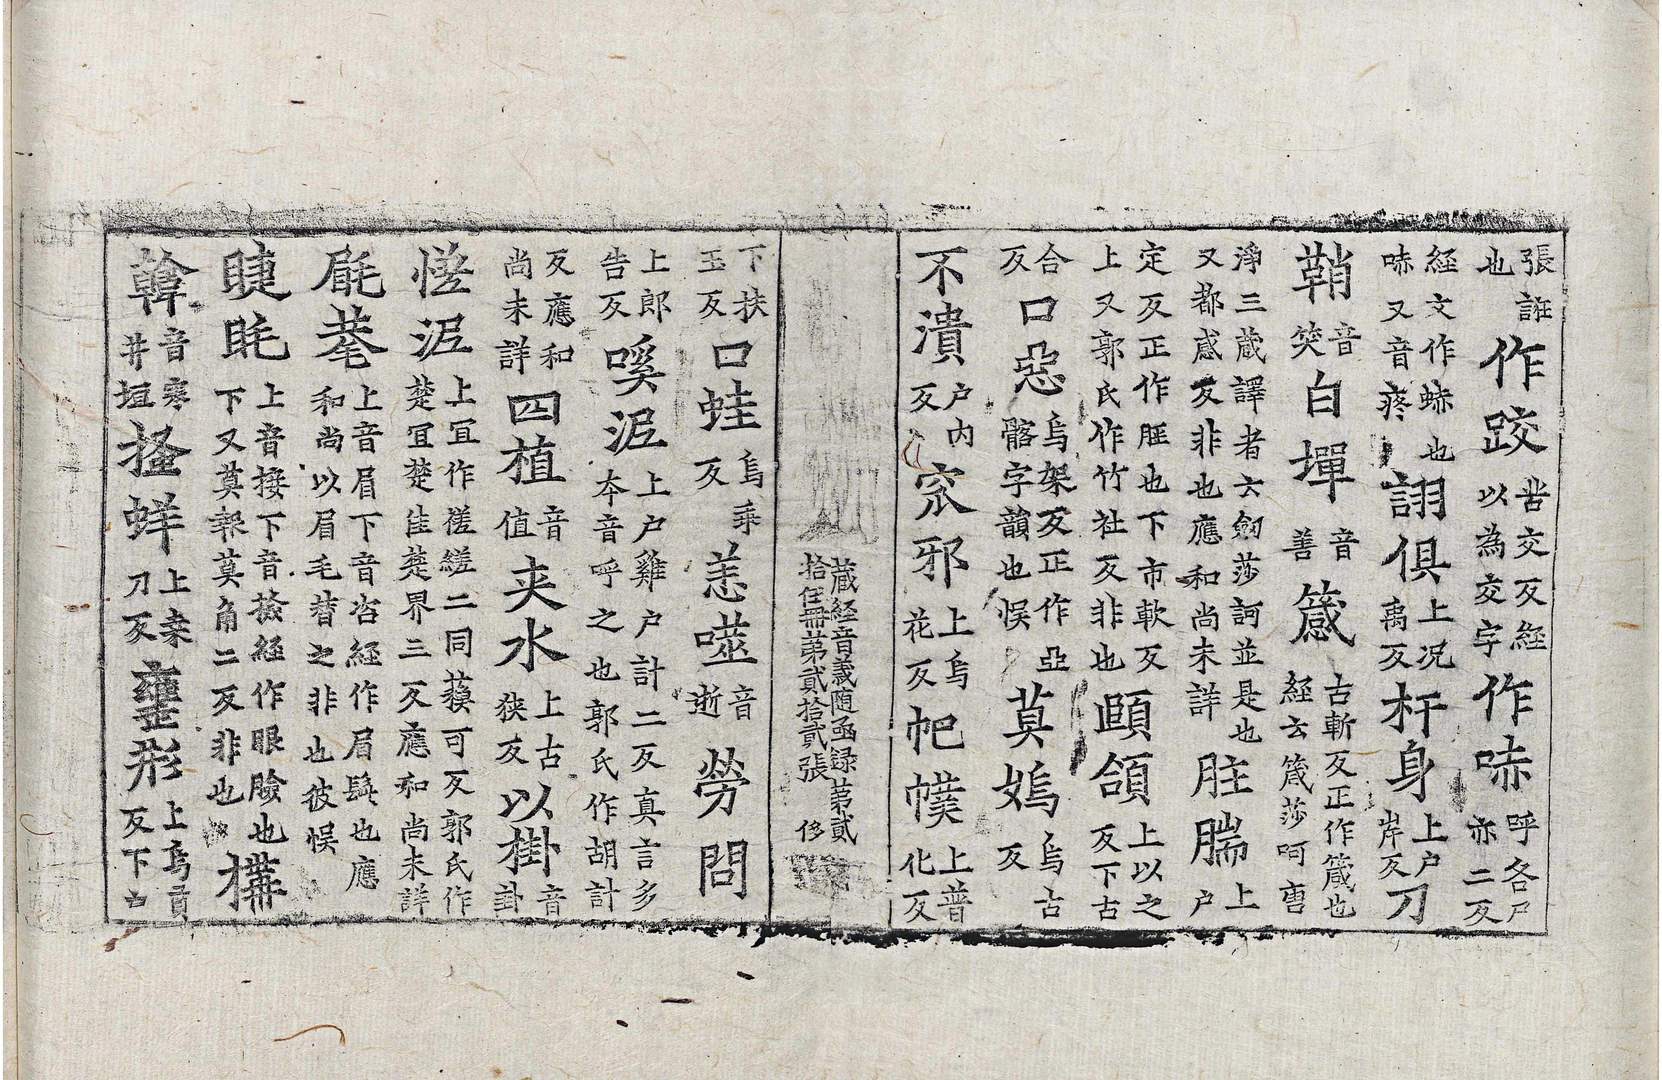 張誑也作跤苦交反経以為交字作㖀呼各尸亦二反
経文作蛷也㖀又音疼詡俱上况禹反杆身上户岸反刀
鞘音笑白墠音善箴古斬反正作箴也経云箴莎呵唐
淨三蔵譯者云劔莎訶並是也又都感反非也應和尚未詳䏝腨上户
定反正作脛也下市軟反上又郭氏作竹社反非也頤頷上以之反下古
合反口惡烏架反正作亞髂字韻也悮莫嫣烏古反
不潰户内反窊邪上烏花反帊幞上普化反
蔵経音義随函録第貳拾伍冊第貳拾貳張
下扶玉反口蛙烏乖反恙噬音逝勞問
上郎告反嗘泥上户雞户計二反真言多本音呼之也郭氏作胡計
反應和尚未詳四植音值夹水上古狭反以掛音卦
㥰泥上冝作㨞縒二同䕢可反郭氏作楚冝楚佳楚界三反應和尚未詳
㕞耄上音眉下音咨経作眉䰅也應和尚以眉毛替之非也彼悮
睫眊上音接下音撿経作眼瞼也下又莫報莫角二反非也構
韓音寒井垣搔蛘上桒刀反壅形上烏貢反下古